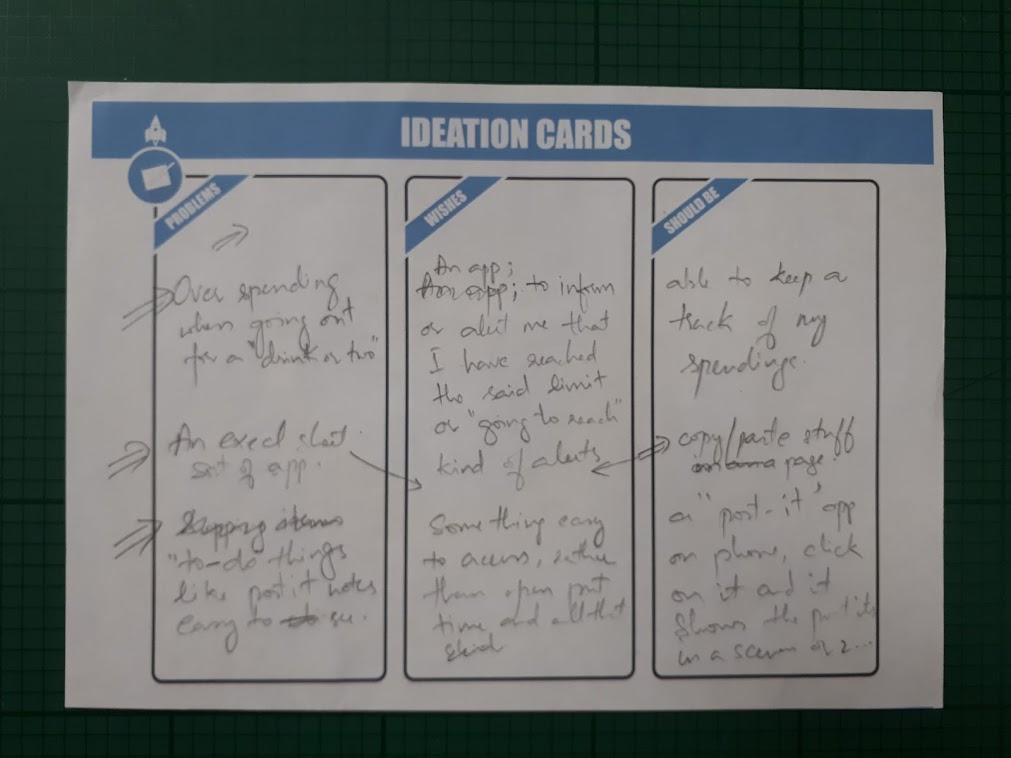 IDEATION CARDS
PROBLEMS
Over spending
when going out
for a "drink or two"
An excel sheet
sort of app.
"to-do-things
like post it notes
easy to see.
WISHES
An app;
to inform
or alert me that
I have reached
the said limit
or "going to reach"
kind of alerts
Something easy
to access, rather
them open put
time and all that
SHOULD BE
able to keep a
track of my
spendings.
copy/paste stuff
page.
a "post-it" app
on phone, click
on it and it
shows the post its
in a screen or 2...